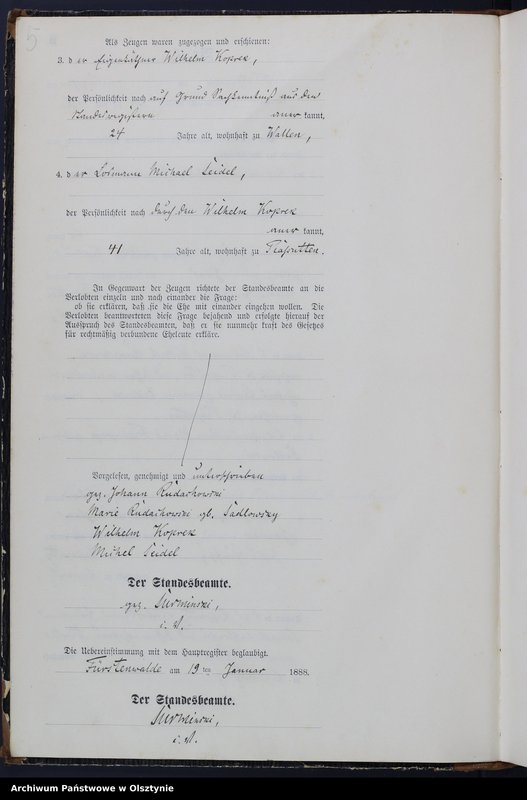 5
Als Zeugen waren zugezogen und erschienen:
3. der Eigenkäthner Wilhelm Koprek,
der Persönlichkeit nach auf Grund Sachkenntniß aus den
Standesregistern aner kannt,
24 Jahre alt, wohnhaft zu Wallen,
4. der Losmann Michael Seidel,
der Persönlichkeit nach durch den Wilhelm Koprek
aner kannt,
41 Jahre alt, wohnhaft zu
In Gegenwart der Zeugen richtete der Standesbeamte an die
Verlobten einzeln und nach einander die Frage:
ob sie erklären, daß sie die Ehe mit einander eingehen wollen. Die
Verlobten beantworteten diese Frage bejahend und erfolgte hierauf der
Ausspruch des Standesbeamten, daß er sie nunmehr kraft des Gesetzes
für rechtmäßig verbundene Eheleute erkläre.
Vorgelesen, genehmigt und unterschrieben
gez. Johann Rudachowski
Marie Rudachowski gb. Sadlowsky
Wilhelm Koprek
Michel Seidel
Der Standesbeamte.
gez. Surminski,
i. V.
Die Uebereinstimmung mit dem Hauptregister beglaubigt.
Fürstenwalde am 19ten Januar 1888.
Der Standesbeamte.
Surminski,
i. V.
Archiwum Państwowe w Olsztynie